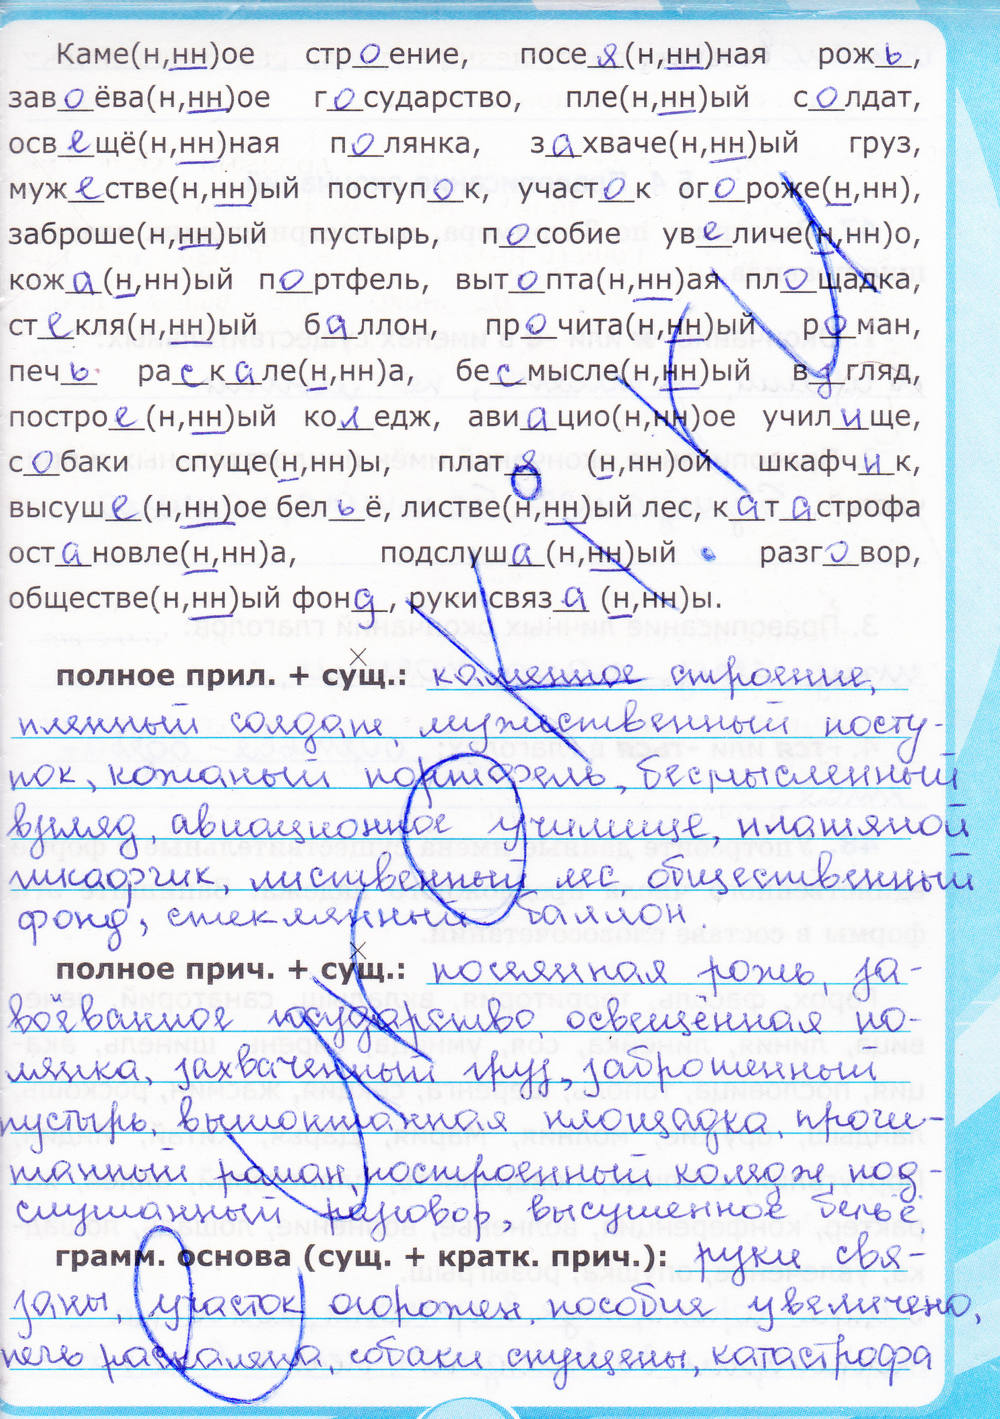 Каме(н,нн)ое строение, посея(н,нн)ная рожь,
завоёва(н,нн)ое государство, пле(н,нн)ый солдат,
освещё(н,нн)ная полянка, захваче(н,нн)ый груз,
мужестве(н,нн)ый поступок, участок огороже(н,нн),
заброше(н,нн)ый пустырь, пособие увеличе(н,нн)о,
кожа(н,нн)ый портфель, вытопта(н,нн)ая площадка,
стекля(н,нн)ый баллон, прочита(н,нн)ый роман,
печь раскале(н,нн)а, бесмысле(н,нн)ый взгляд,
построе(н,нн)ый коледж, авиацио(н,нн)ое училище,
собаки спуще(н,нн)ы, платя(н,нн)ой шкафчик,
высуше(н,нн)ое бельё, листве(н,нн)ый лес, катастрофа
остановле(н,нн)а, подслуша(н,нн)ый разговор,
обществе(н,нн)ый фонд, руки связа(н,нн)ы.
полное прил. + сущ.: каменное строение,
пленный солдат, мужественный посту-
пок, кожаный портфель, бесмысленный
взгляд, авиационное училище, платяной
шкафчик, лиственный лес, общественный
фонд, стеклянный баллон.
полное прич. + сущ.: посеянная рожь, за-
воеванное государство, освещенная по-
лянка, захваченный груз, заброшенный
пустырь, вытоптанная площадка, прочи-
танный роман, построенный коледж, под-
слушанный разговор, высушенное бельё
грамм. основа (сущ. + кратк. прич.): руки свя-
заны, участок огорожен, пособия увеличено,
печь раскалена, собаки спущены, катастрофа